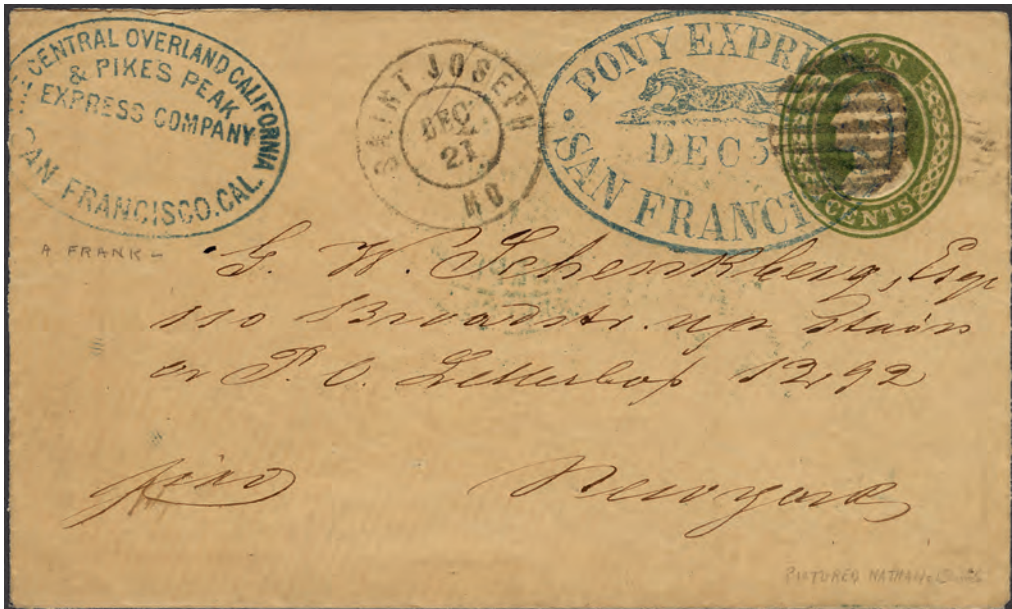 CENTRAL OVERLAND CALIFORNIA
& PIKES PEAK
EXPRESS COMPANY
SAN FRANCISCO. CAL.
SAINT JOSEPH
DEC
21
MO
PONY EXPR
DEC 5
SAN FRANCI
TEN
CENTS
A FRANK -
G. W. Schenkberg, Esqr
110 Broadstr. up Stairs
or P. O. Letterbox 1292
New york
PICTURED NATHAN